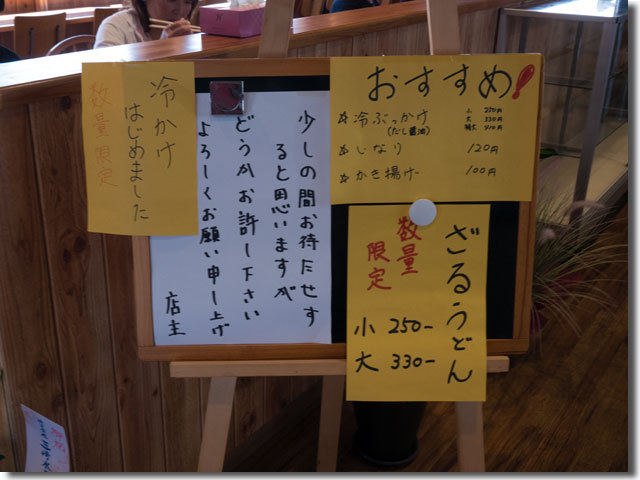 冷かけ
はじめました
数量限定
少しの間お待たせす
ると思いますが
どうかお許し下さい
よろしくお願い申し上げ
店主
おすすめ!
☆冷ぶっかけ
(だし醤油)
小 250円
大 330円
特大 410円
☆いなり 120円
☆かき揚げ 100円
ざるうどん
数量
限定
小 250-
大 330-